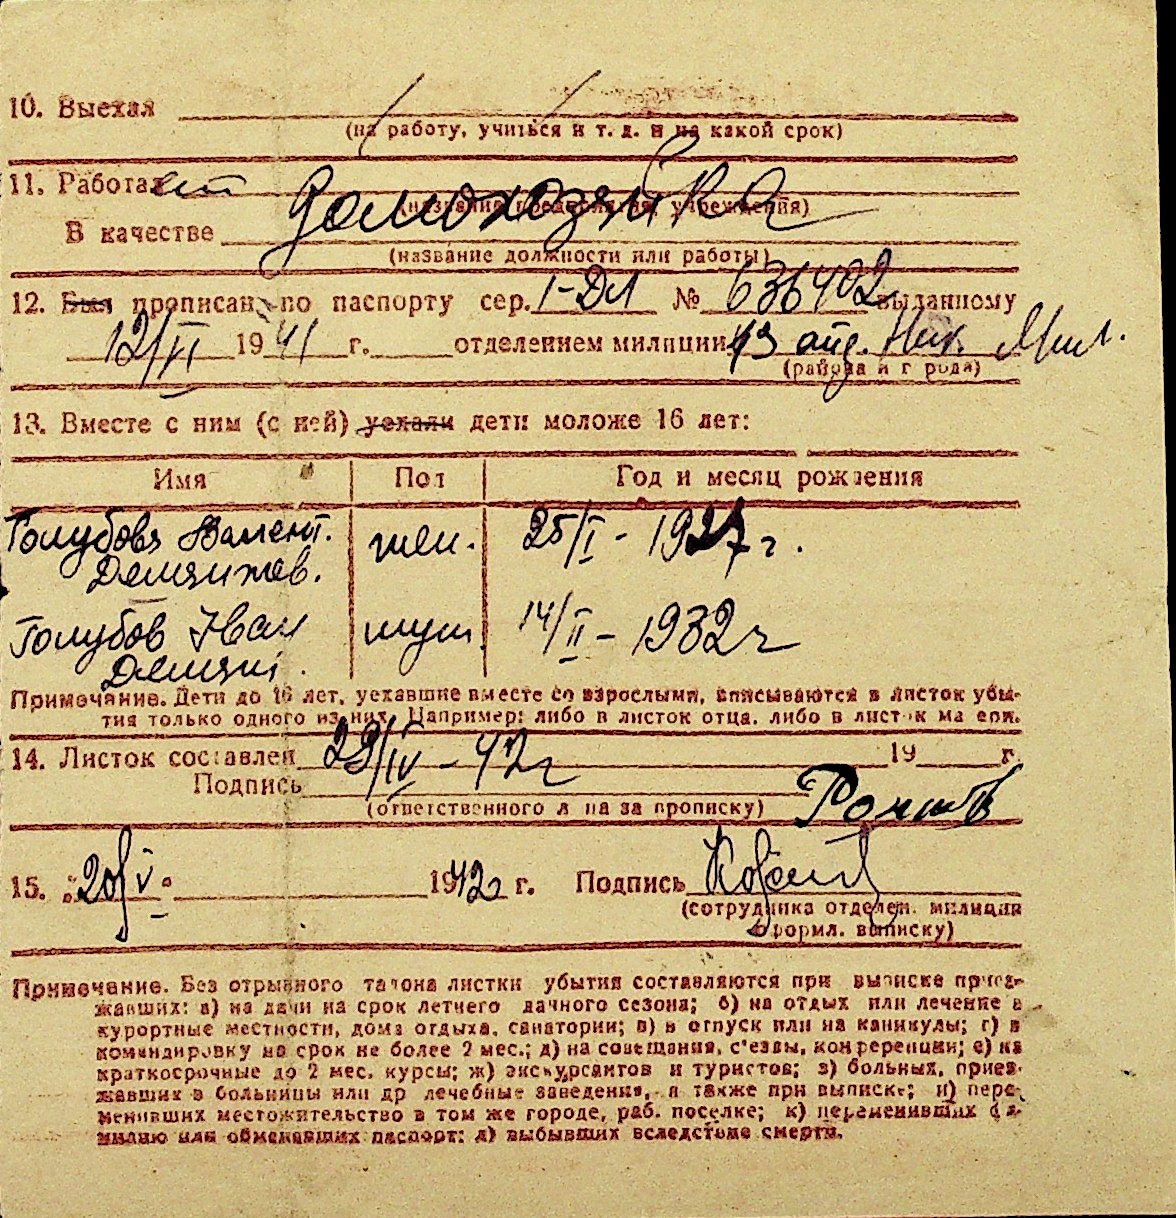 10. Выехал
(на работу, учиться и т. д. и на какой срок)
11. Работает домохозяйка
(название предприятия, учреждения)
В качестве
(название должности или работы)
12. Был прописан по паспорту сер. I-ДЛ № 636402 выданному
12/VI 1941 г. отделением милиции 43 отд. Ник. Мил.
(района и города)
13. Вместе с ним (с ней) уехали дети моложе 16 лет:
Имя Пол Год и месяц рождения
Голубова Валент. жен. 25/I - 1927 г.
Демяно
Голубов Иван муж. 14/II - 1932 г
Демян
Примечание. Дети до 16 лет, уехавшие вместе со взрослыми, вписываются в листок убы-
тия только одного из них. Например: либо в листок отца, либо в листок матери.
14. Листок составлен 29/IV - 42 г 19 г.
Подпись
(ответственного лица за прописку)
15. „20/V“ 1942 г. Подпись
(сотрудника отделен. милиции
оформл. выписку)
Примечание. Без отрывного талона листки убытия составляются при выписке приез-
жавших: а) на дачи на срок летнего дачного сезона; б) на отдых или лечение в
курортные местности, дома отдыха, санатории; в) в отпуск или на каникулы; г) в
командировку на срок не более 2 мес.; д) на совещания, с'езды, конференции; е) на
краткосрочные до 2 мес. курсы; ж) экскурсантов и туристов; з) больных, приез-
жавших в больницы или др лечебные заведения, а также при выписке; и) пере-
менивших местожительство в том же городе, раб. поселке; к) переменивших фа-
милию или обменявших паспорт; л) выбывших вследствие смерти.